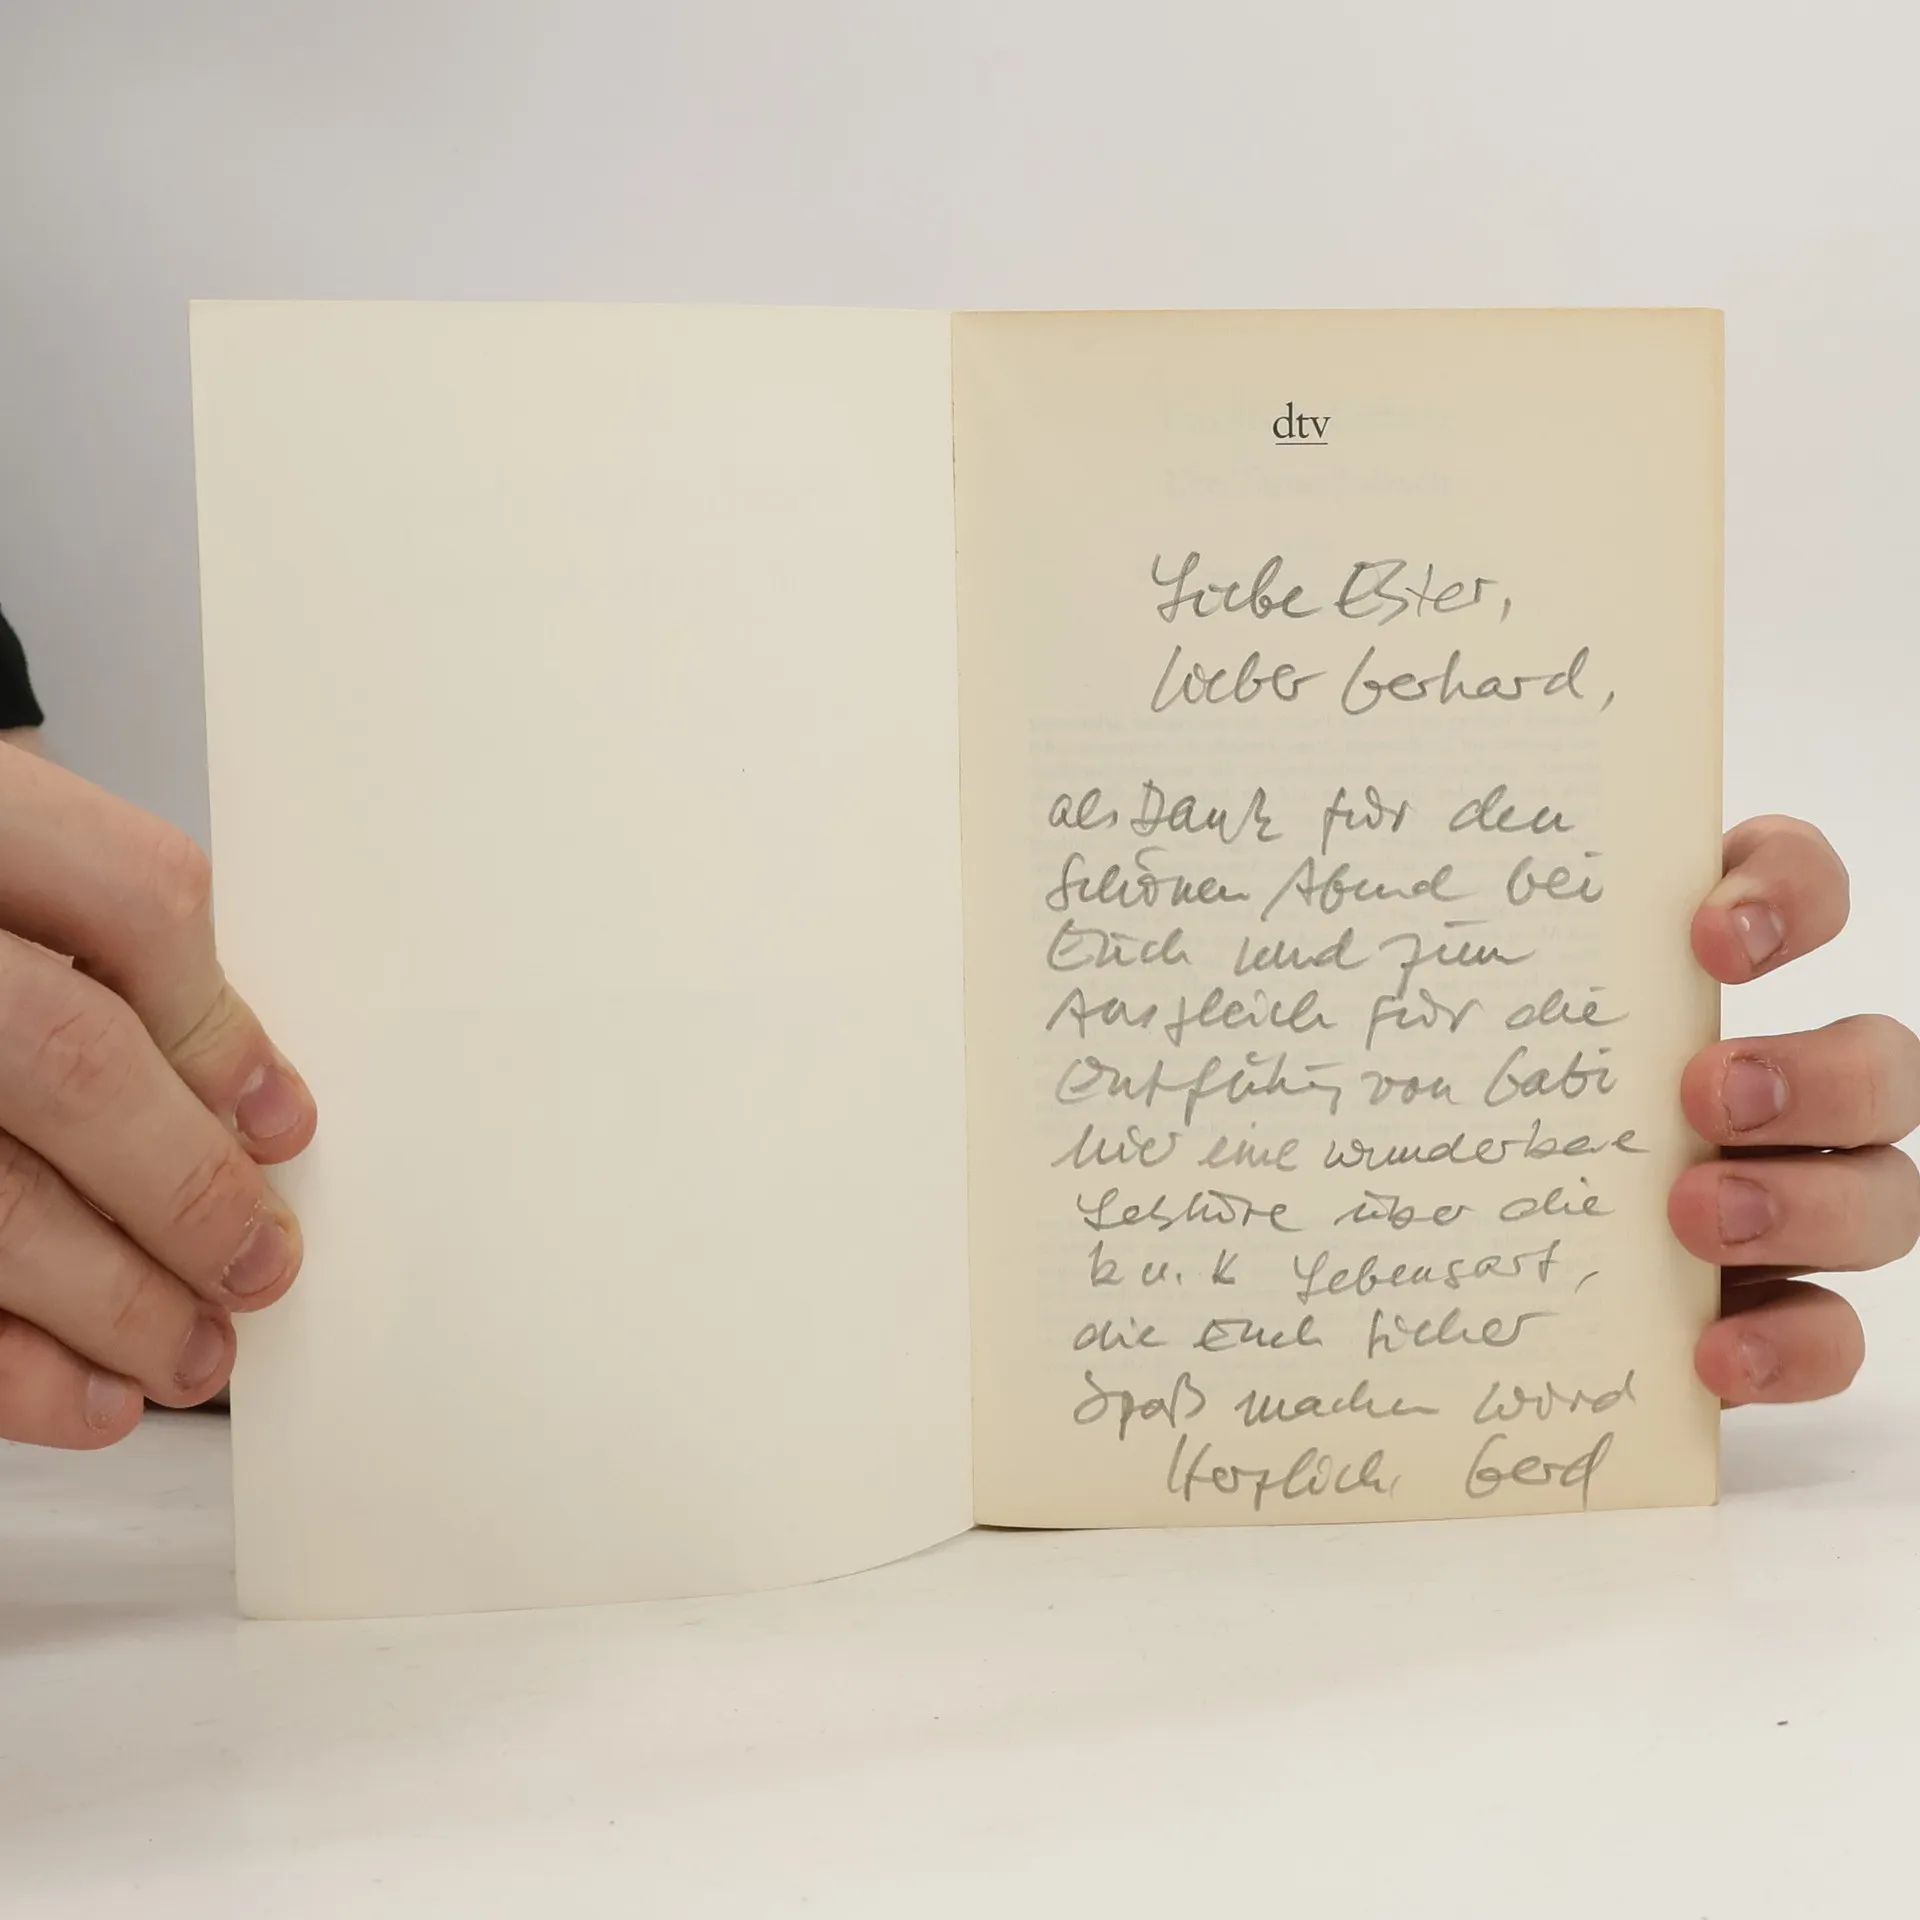 dtv
Liebe Ester,
lieber Gerhard,
als Dank für den
schönen Abend bei
Euch und zum
Ausgleich für die
Entführg von Gabi
hier eine wunderbare
Lektüre über die
k u. k Lebensart,
die Euch sicher
Spaß machen wird
Herzlich, Gerd